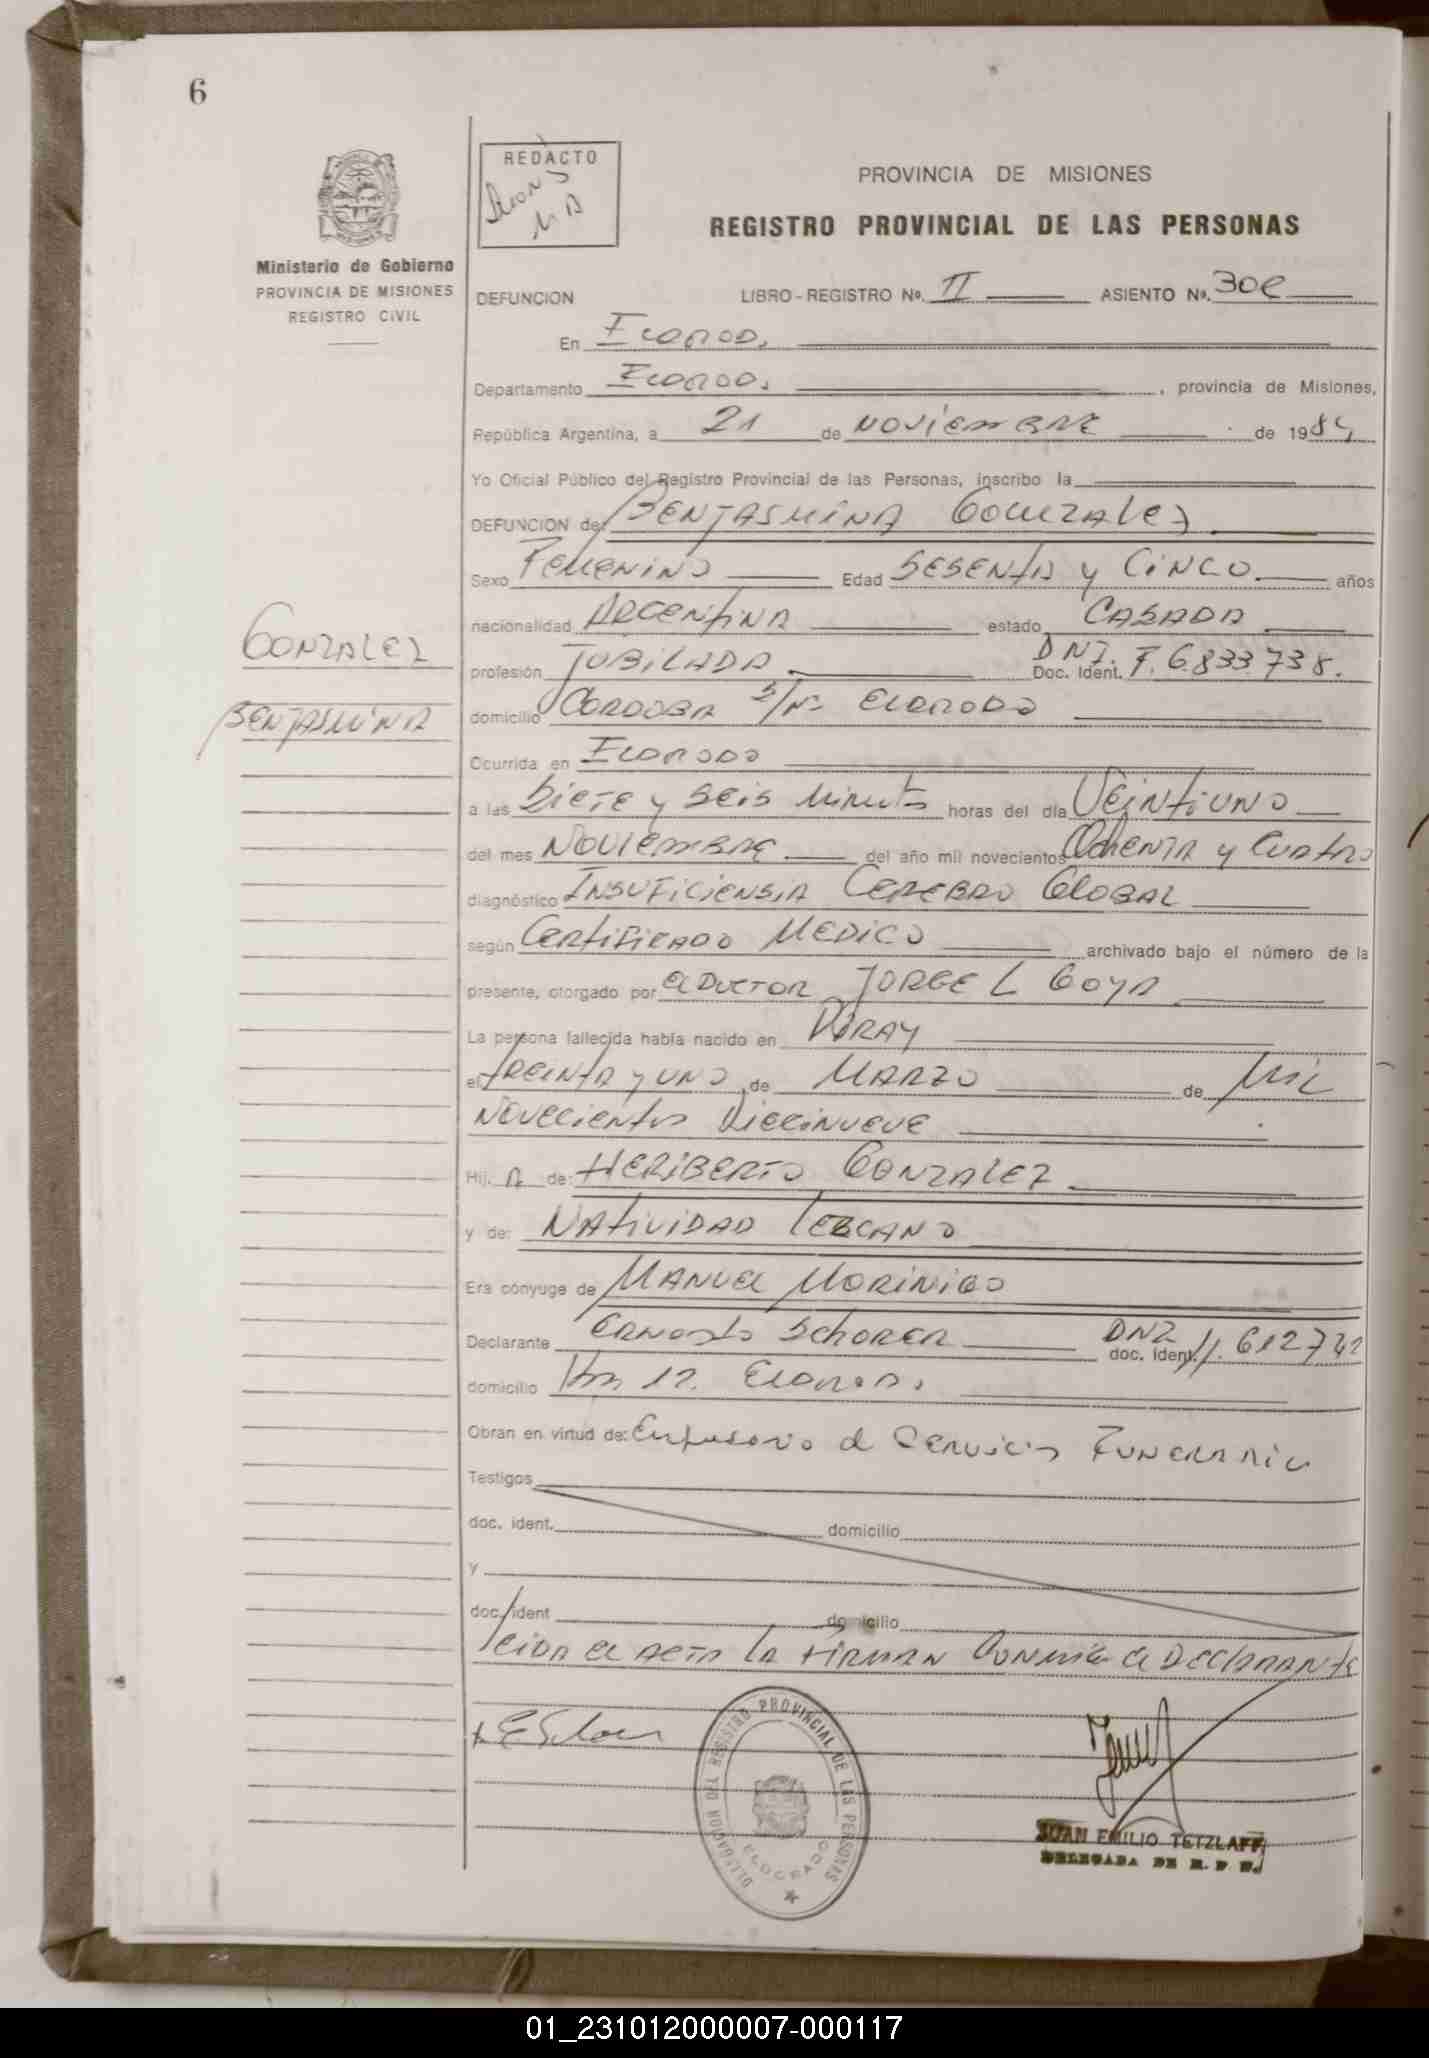 6
REDACTO
PROVINCIA DE MISIONES
REGISTRO PROVINCIAL DE LAS PERSONAS
Ministerio de Gobierno
PROVINCIA DE MISIONES
REGISTRO CIVIL
DEFUNCION LIBRO-REGISTRO Nº. II ASIENTO Nº.
En
Departamento , provincia de Misiones,
República Argentina, a 21 de NOViEMBRE de 1984
Yo Oficial Público del Registro Provincial de las Personas, inscribo la
DEFUNCION de: BENJASMINA GONZALEZ
Sexo FEMENINO Edad SESENTA y CiNCO años
nacionalidad ARGENTINA estado CASADA
profesión JUBILADA DNI. Doc. Ident. F. 6.833.738.
domicilio CORDOBA S/Nº ELDORADO
GONZALEZ
BENJASMINA
Ocurrida en ELDORADO
a las SIETE y SEIS MINUTOS horas del día VEINTIUNO
del mes NOVIEMBRE del año mil novecientos OCHENTA y CUATRO
diagnóstico INSUFICIENSIA CEREBRO GLOBAL
según CERTIFICADO MEDICO archivado bajo el número de la
presente, otorgado por el DOCTOR JORGE L GOYA
La persona fallecida había nacido en PIRAY
el TREINTA y UNO de MARZO de MIL
NOVECIENTOS DIECINUEVE
Hij. A de: HERIBERTO GONZALEZ
y de: NATIVIDAD LEZCANO
Era cónyuge de MANUEL MORINIGO
Declarante ERNESTO SCHORER DNI doc. ident. 11.612742
domicilio Km 12. ELDORADO.
Obran en virtud de: Empresario de SERVICIOS FUNERARIO
Testigos
doc. ident. domicilio
y
doc. ident domicilio
LEIDA EL ACTA LA FIRMAN CONMIGO EL DECLARANTE
DELEGACION DEL REGISTRO PROVINCIAL DE LAS PERSONAS
ELDORADO
JUAN EMILIO TETZLAFF
DELEGADA DE R. P P.
01_231012000007-000117